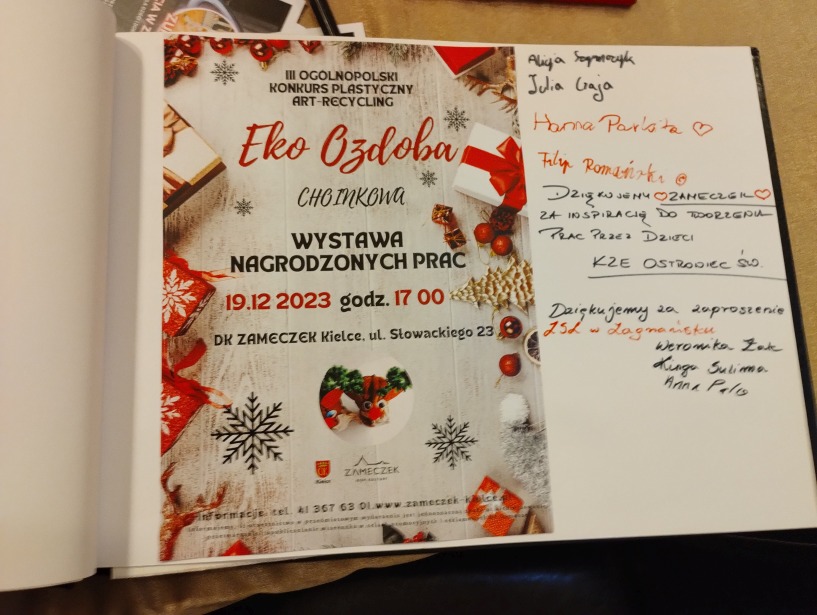 III OGÓLNOPOLSKI
KONKURS PLASTYCZNY
ART-RECYCLING
Eko Ozdoba
CHOINKOWA
WYSTAWA
NAGRODZONYCH PRAC
19.12 2023 godz. 17 00
DK ZAMECZEK Kielce, ul. Słowackiego 23
ZAMECZEK
informacje: tel. 41 367 63 01, www.zameczek-kielce
Alicja
Julia
Hanna
Filip Romański
DZIĘKUJEMY ZAMECZEK
ZA INSPIRACJĘ DO TWORZENIA
PRAC PRZEZ DZIECI
KZE OSTROWIEC ŚW.
Dziękujemy za zaproszenie
ZSL w Zagnańsku
Weronika Żak
Kinga Sulima
Anna